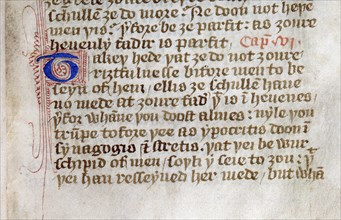 schulle ȝe do more: ne doon not heþe
men þis: ȝfore be ȝe parfit: as ȝoure
heuenly fadir is parfit, Capᵐ VI.
Takeþ hede ȝat ȝe do not ȝoure
riȝtfulnesse bifore men to be
seyn of hem/ ellis ȝe schulle haue
no mede at ȝoure fadir ȝᵗ is in heuenes/
ȝfor whãne ȝou doost almes: nyle ȝou
trũpe tofore ȝee as ypocritis doon in
synagogis & stretis. ȝat ȝei be wur-
schipid of men/ soþly y seie to ȝou: ȝ
ȝei han resseyued her mede/ but whãne